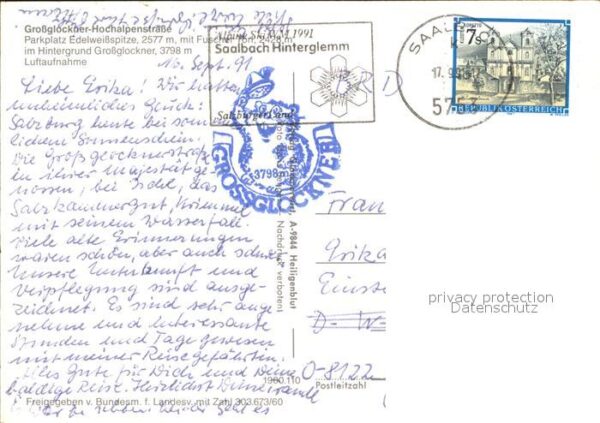 Großglockner-Hochalpenstraße
Parkplatz Edelweißspitze, 2577 m, mit Fuscher Törl, 2428 m
im Hintergrund Großglockner, 3798 m
Luftaufnahme
10. Sept. 91
Liebe Erika! Wir hatten
unheimliches Glück:
Salzburg heute bei
lichem Sonnenschein.
Die Großglocknerstraße
in ihrer Majestät ge-
nossen, bei Ischl, das
Salzkammergut, Krimmel
mit seinem Wasserfall.
Viele alte Erinnerungen
waren schön, aber auch schwer
Unsere Unterkunft und
Verpflegung sind ausge-
zeichnet. Es sind sehr ange
nehme und interessante
Stunden und Tage gewesen
mit meiner Reisegefährtin.
Alles Gute für Dich und Deine
baldige Reise. Herzlichst Deine
Freigegeben v. Bundesm. f. Landesv. mit Zahl 303.673/60
Alpine Ski WM 1991
Saalbach Hinterglemm
Salzburger Land
BRD
GROSSGLOCKNER
3798 m
A-9844 Heiligenblut
Nachdruck verboten
1960.110
SAALBACH
17. 9.
7s
REPUBLIK ÖSTERREICH
Frau
Erika
D-W-
O-8122
Postleitzahl
privacy protection
Datenschutz